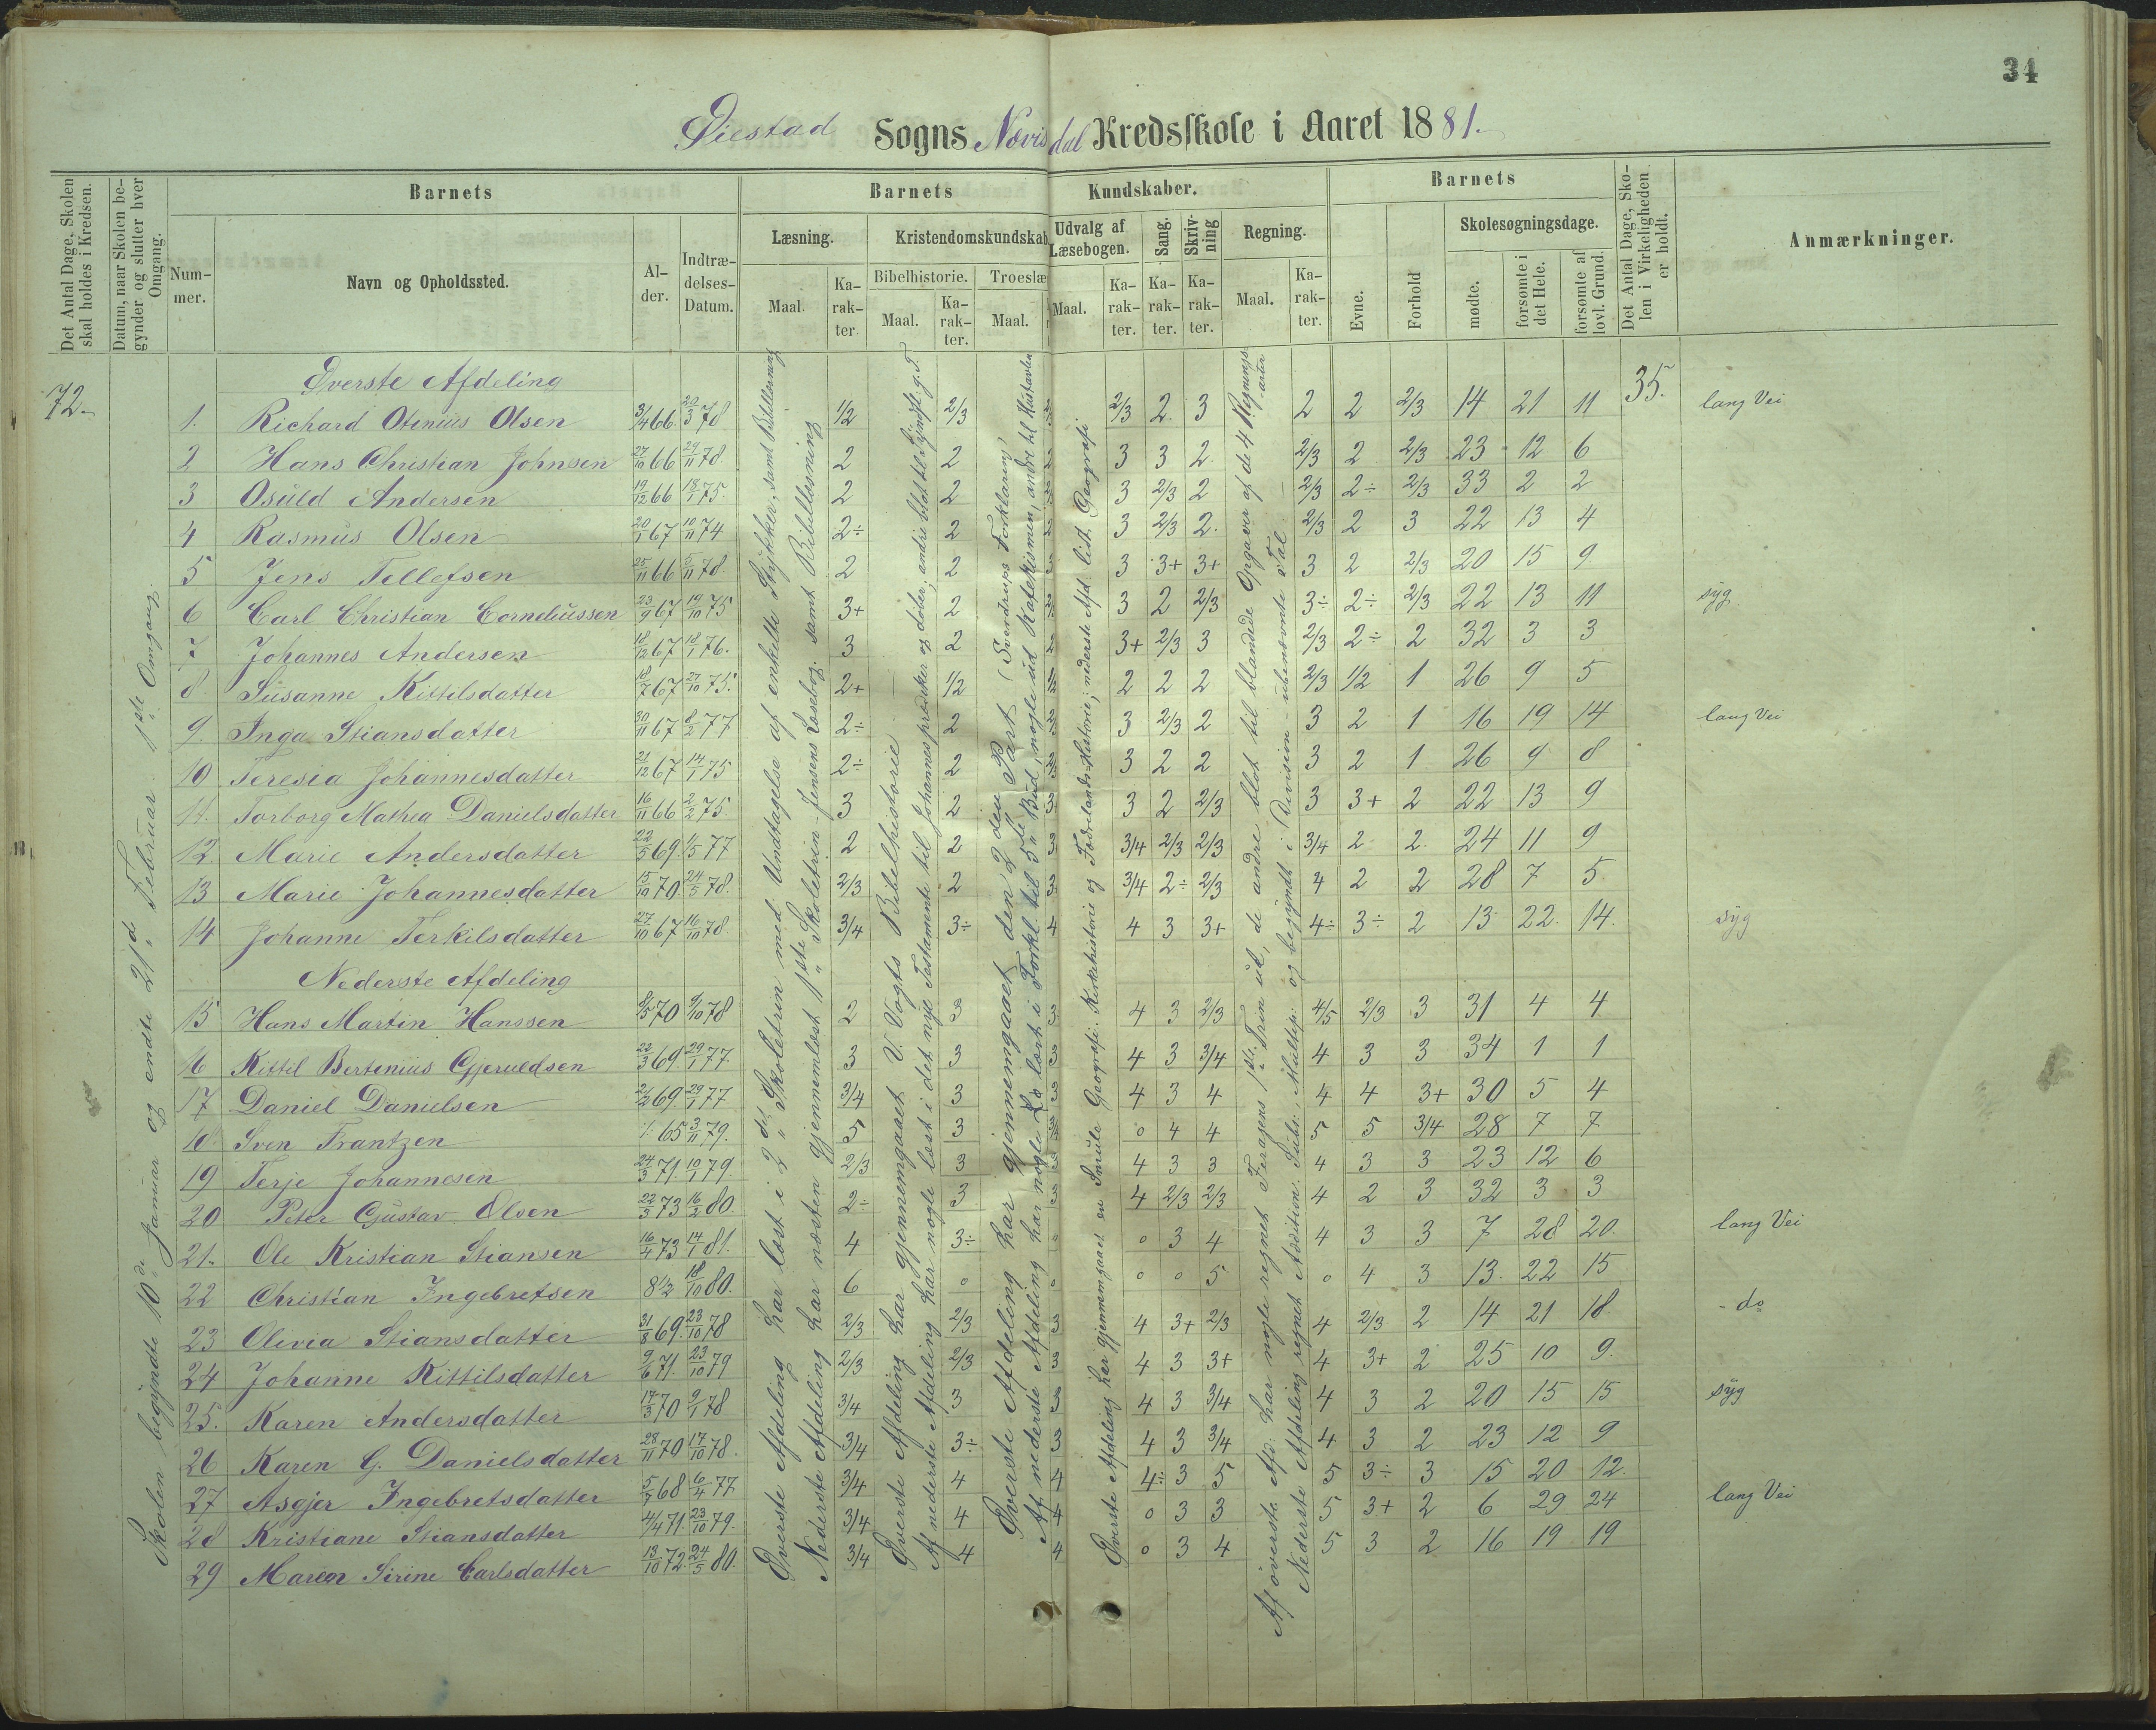 34
Øiestad Sogns Nævisdal Kredsskole i Aaret 1881.
Det Antal Dage, Skolen skal holdes i Kredsen.
Datum, naar Skolen begynder og slutter hver Omgang.
Barnets
Nummer.
Navn og Opholdssted.
Alder.
Indtrædelses-Datum.
Barnets Kundskaber.
Læsning.
Maal.
Karakter.
Kristendomskundskab
Bibelhistorie.
Maal.
Karakter.
Troeslæ
Maal.
Udvalg af Læsebogen.
Maal.
Karakter.
Sang.
Karakter.
Skrivning
Karakter.
Regning.
Maal.
Karakter.
Barnets
Evne.
Forhold
Skolesøgningsdage.
mødte.
forsømte i det Hele.
forsømte af lovl. Grund.
Det Antal Dage, Skolen i Virkeligheden er holdt.
Anmærkninger.
72.
Skolen begyndte 10de Januar og endte 21d Februar 1ste Omgang.
Øverste Afdeling
35.
1. Richard Otinius Olsen 3/4 66. 20/3 78 1/2 2/3 2/3 2. 3 2 2 2/3 14 21 11 lang Vei
2 Hans Christian Johnsen 27/10 66 29/11 78. 2 2 3 3 2. 2/3 2 2/3 23 12 6
3 Osuld Andersen 19/12 66 18/1 75. 2 2 3 2/3 2 2/3 2÷ 2/3 33 2 2
4 Rasmus Olsen 20/1 67 10/11 74 2÷ 2 3 2/3 2. 2/3 2 3 22 13 4
5 Jens Tellefsen 25/11 66 5/11 78. 2 2 3 3+ 3+ 3 2 2/3 20 15 9.
6 Carl Christian Corneliussen 23/9 67 19/10 75 3+ 2 3 2 2/3 3÷ 2÷ 2/3 22 13 11 syg.
7 Johannes Andersen 18/12 67 18/1 76. 3 2 3+ 2/3 3 2/3 2÷ 2 32 3 3
8 Susanne Kittilsdatter 18/7 67 27/10 75. 2+ 1/2 2 2 2 2/3 1/2 1 26 9 5
9. Inga Stiansdatter 30/11 67 8/2 77 2÷ 2 3 2/3 2 3 2 1 16 19 14 lang Vei
10 Teresia Johannesdatter 21/12 67 14/1 75 2÷ 2 3 2 2 3 2 1 26 9 8
11. Torborg Mathea Danielsdatter 16/11 66 2/2 75. 3 2 3 2 2/3 3 3+ 2 22 13 9
12. Marie Andersdatter 22/5 69. 1/5 77 2 2 3/4 2/3 2/3 3/4 2 2. 24 11 9
13 Marie Johannesdatter 15/10 70 24/5 78. 2/3 2 3/4 2÷ 2/3 4 2 2 28 7 5
14 Johanne Terkilsdatter 27/10 67 16/10 78. 3/4 3÷ 4 4 3 3+ 4÷ 3÷ 2 13 22. 14. syg
Nederste Afdeling
15 Hans Martin Hanssen 8/5 70 9/10 78 2 3 3 4 3 2/3 4/5 2/3 3 31 4 4
16 Kittil Bertinius Gjeruldsen 22/3 69. 29/1 77 3 3 3 4 3 3/4 4 3 3 34 1 1
17 Daniel Danielsen 21/2 69. 29/1 77 3/4 3 3 4 3 4 4 4 3+ 30 5 4
18 Sven Frantzen 1. 65 3/11 79. 5 3 3/4 0 4 4 5 5 3/4 28 7 7
19 Terje Johannesen 24/3 71. 10/1 79. 2/3 3 3 4 3 3 4 3 3 23 12 6
20 Peter Gustav Olsen 22/3 73 16/2 80. 2÷ 3 3 4 2/3 2/3 4 2 3 32 3 3
21. Ole Kristian Stiansen 16/4 73 14/1 81. 4 3÷ 0 0 3 4 4 3 3 7 28 20. lang Vei
22 Christian Ingebretsen 8½ 18/10 80. 6 0 0 0 0 5 0 4 3 13. 22 15
23 Olivia Stiansdatter 31/8 69. 23/10 78 2/3 2/3 3 4 3+ 2/3 4 2/3 2 14 21 18 - do
24 Johanne Kittilsdatter 9/6 71. 23/10 79 2/3 2/3 3 4 3 3+ 4 3+ 2 25 10 9.
25. Karen Andersdatter 17/3 70 9/1 78 3/4 3 3 4 3 3/4 4 3 2 20 15 15 syg
26 Karen G. Danielsdatter 28/11 70 17/10 78. 3/4 3÷ 3 4 3 3/4 4 3 2 23 12 9
27 Asgjer Ingebretsdatter 5/7 68 6/4 77 3/4 4 4 4÷ 3 5 5 3÷ 3 15 20 12.
28 Kristiane Stiansdatter 4/4 71. 23/10 79. 3/4 4 4 0 3 3 5 3+ 2 6 29 24 lang Vei
29 Maren Sirine Carlsdatter 13/10 72. 24/5 80. 3/4 4 4 0 3 4 5 3 2 16 19 19
Øverste Afdeling har læst i 2det Skoletrin med Undtagelse af enkelte Stykker, samt Bibellæsning
Nederste Afdeling har næsten gjennemlæst 1ste Skoletrin - Jensens Læsebog. samt Bibellæsning
Øverste Afdeling har gjennemgaaet V. Vogts Bibelhistorie
Af nederste Afdeling har nogle læst i det nye Testamente til Johannes prædiker og døber, andre blot til
Øverste Afdeling har gjennemgaaet den 2den Part (Sverdrups Forklaring)
Af nederste Afdeling har nogle læst i Forkl. til 5te Bud, nogle ud Katekismen, andre til Hustavlen
Øverste Afdeling har gjennemgaaet en Smule Geografi, Kirkehistorie og Fædrelands-Historie; nederste Afd. lidt Geografi
Af øverste Afd. har nogle regnet Feragens 1ste Trin ud, de andre blot til blandede Opgaver af de 4 Regningsarter
Nederste Afdeling regnet Addition. Subtr., Multip. og begyndt i Division - ubenævnte Tal